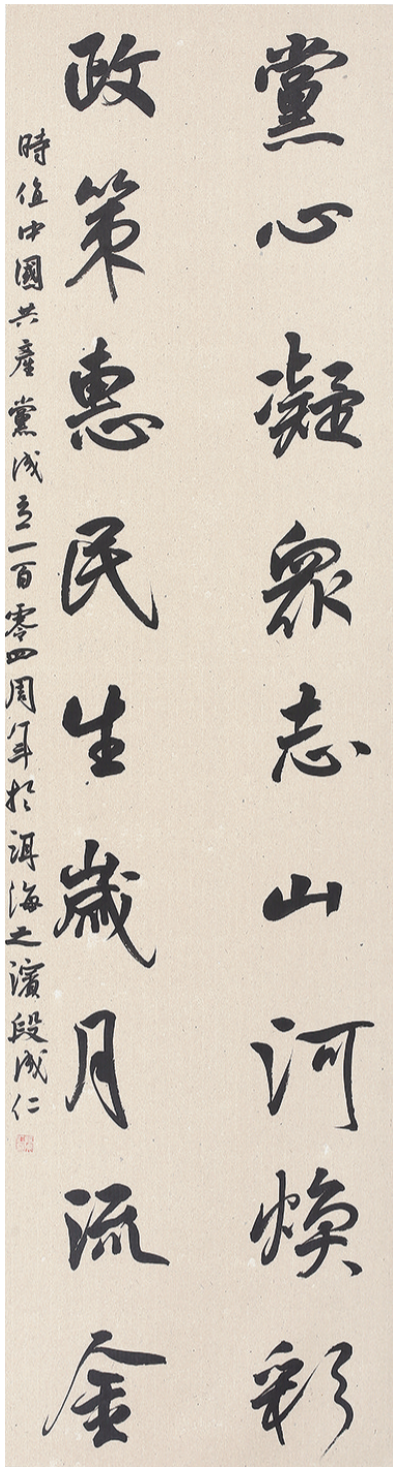 黨心凝眾志山河焕彩
政策惠民生歲月流金
時值中國共產黨成立一百零四周年於洱海之濱段成仁